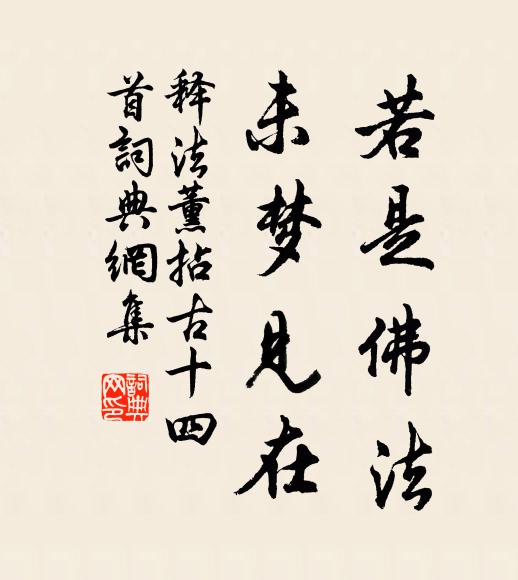 若是佛法
未梦见在
释法薰拈古十四
首詞典網集
詞典
网印